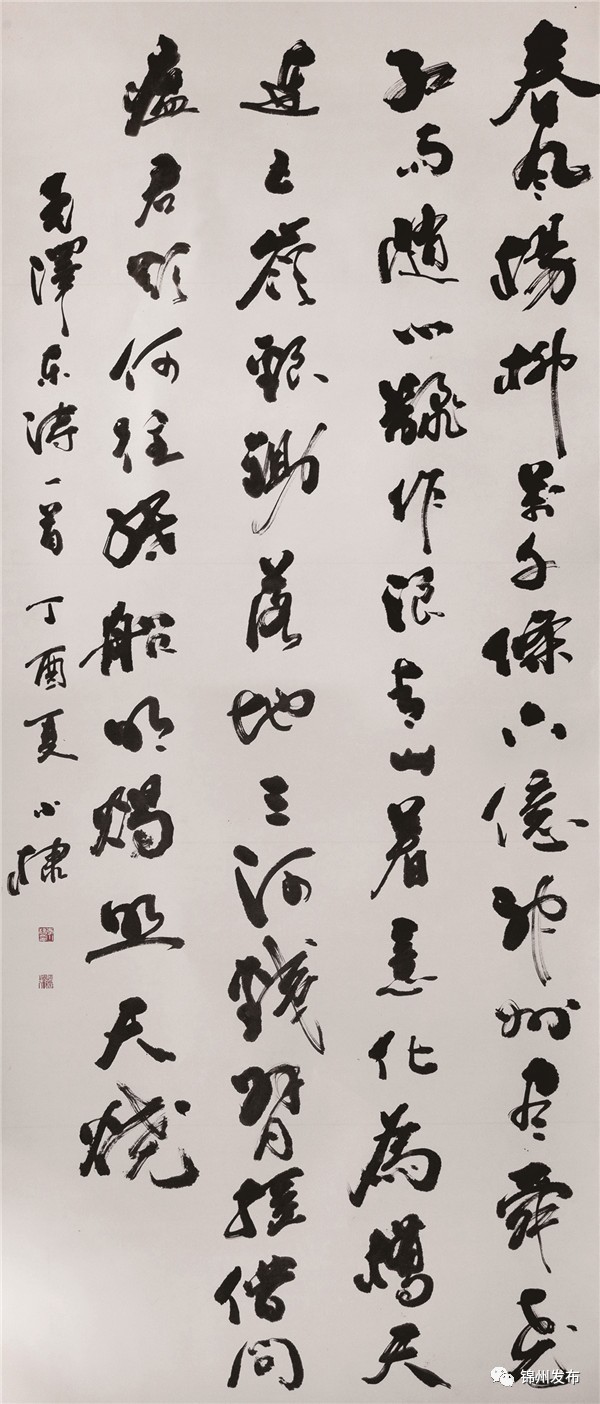 春风楊柳萬千條六億神州尽舜尧
红雨随心飜作浪青山着意化為橋天
連五嶺銀鋤落地三河鐵臂摇借问
瘟君欲何往紙船明燭照天燒
毛澤东诗一首 丁酉夏
锦州发布